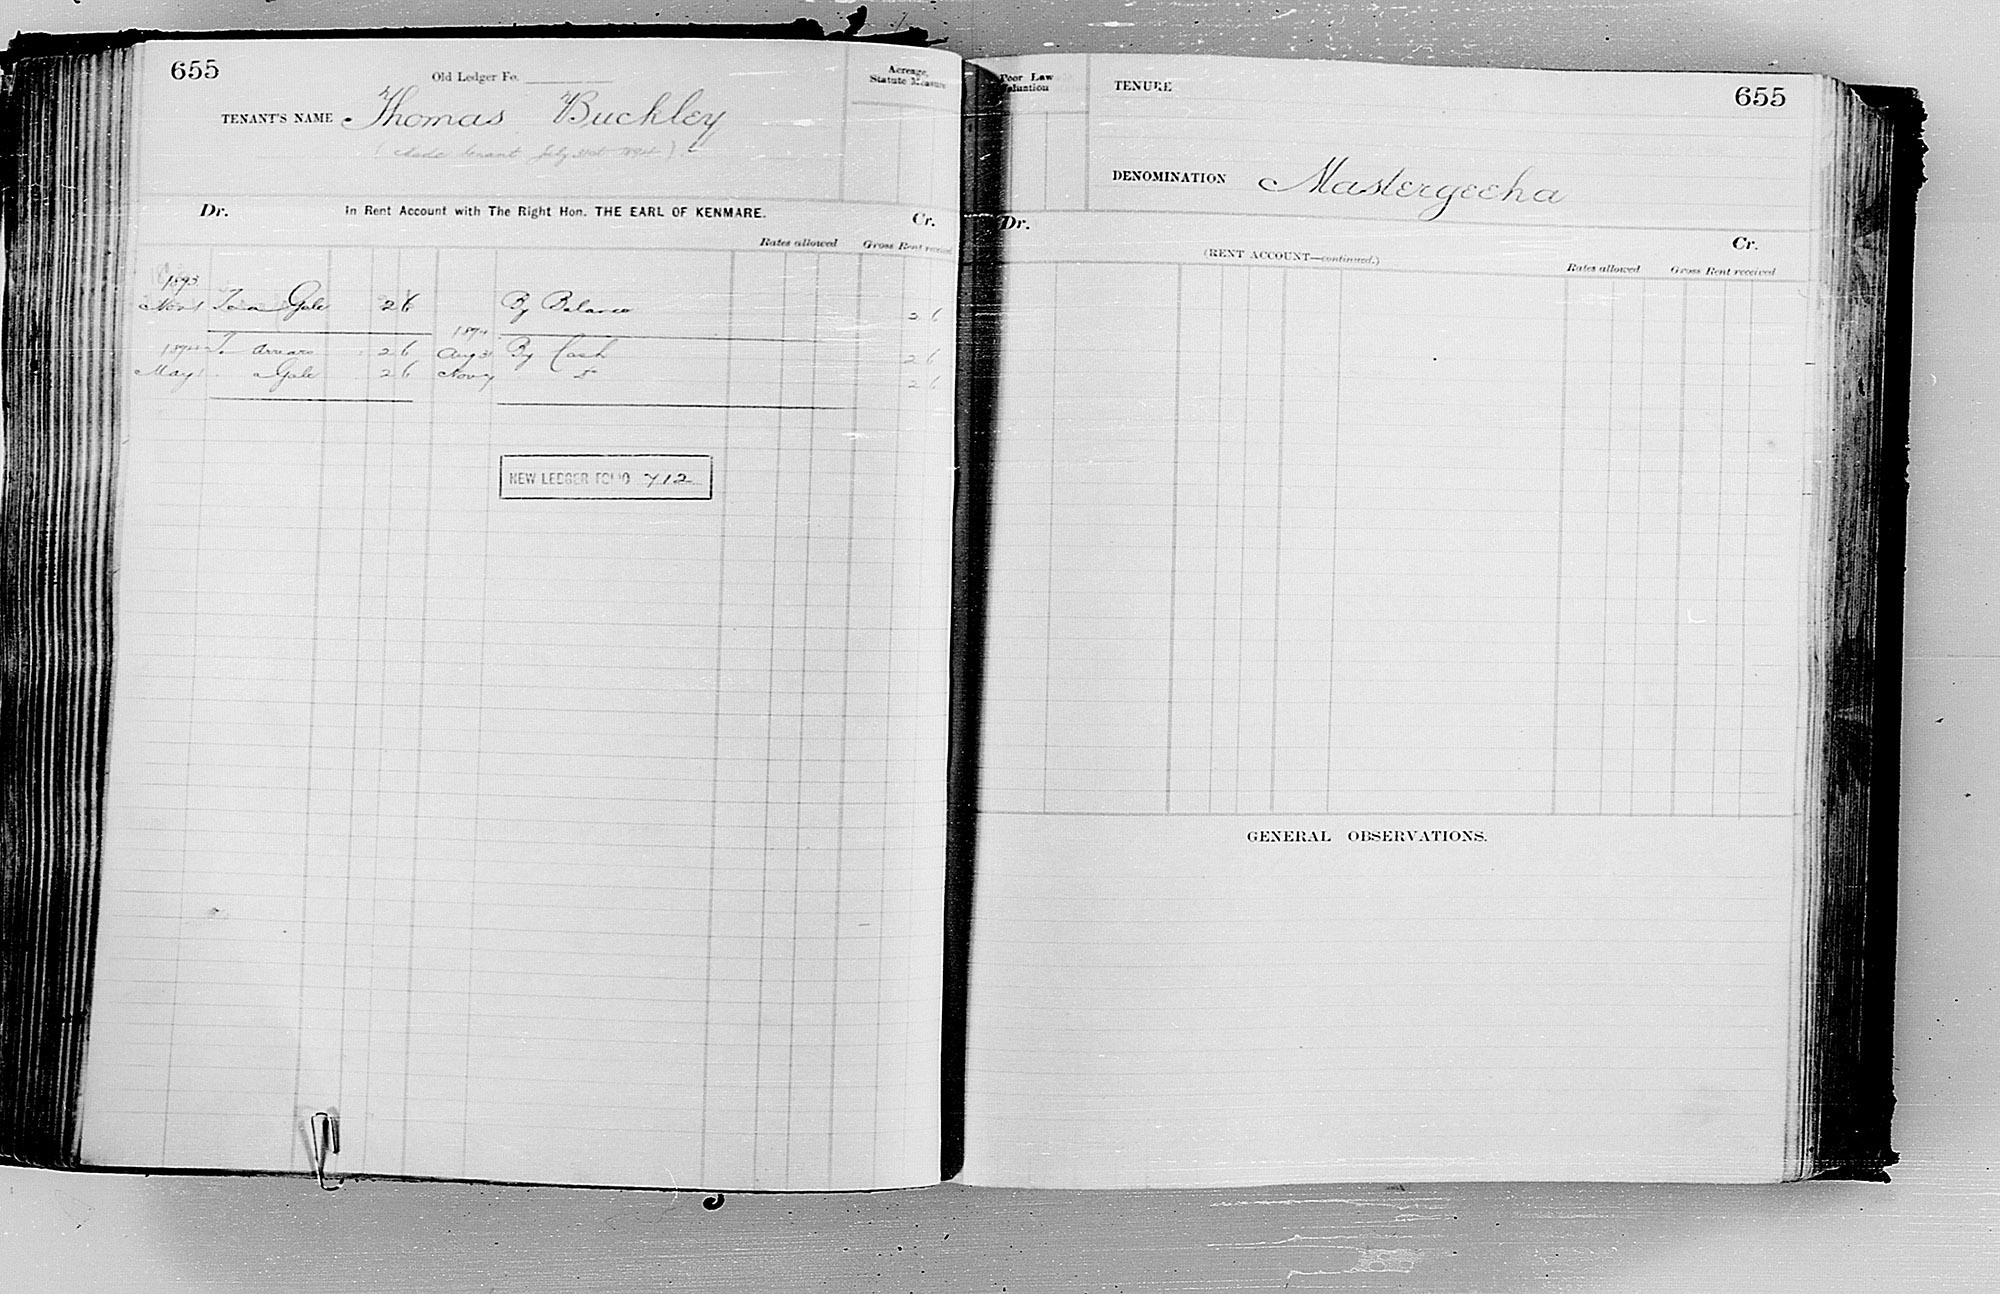 655
Old Ledger Fo.
Acreage, Statute Measure
TENANT'S NAME Thomas Buckley
(Made tenant July 31st 1894)
Dr. In Rent Account with The Right Hon. THE EARL OF KENMARE. Cr.
Rates allowed Gross Rent received
1893
Nov 1 To a Gale 2 6 By Balance 2 6
1894
1894 To Arrears 2 6 Aug 31 By Cash 2 6
May 1 a Gale 2 6 Nov 2 6
NEW LEDGER FOLIO 712
Poor Law Valuation
TENURE
655
DENOMINATION Mastergeeha
Dr. Cr.
(RENT ACCOUNT—continued.)
Rates allowed Gross Rent received
GENERAL OBSERVATIONS.